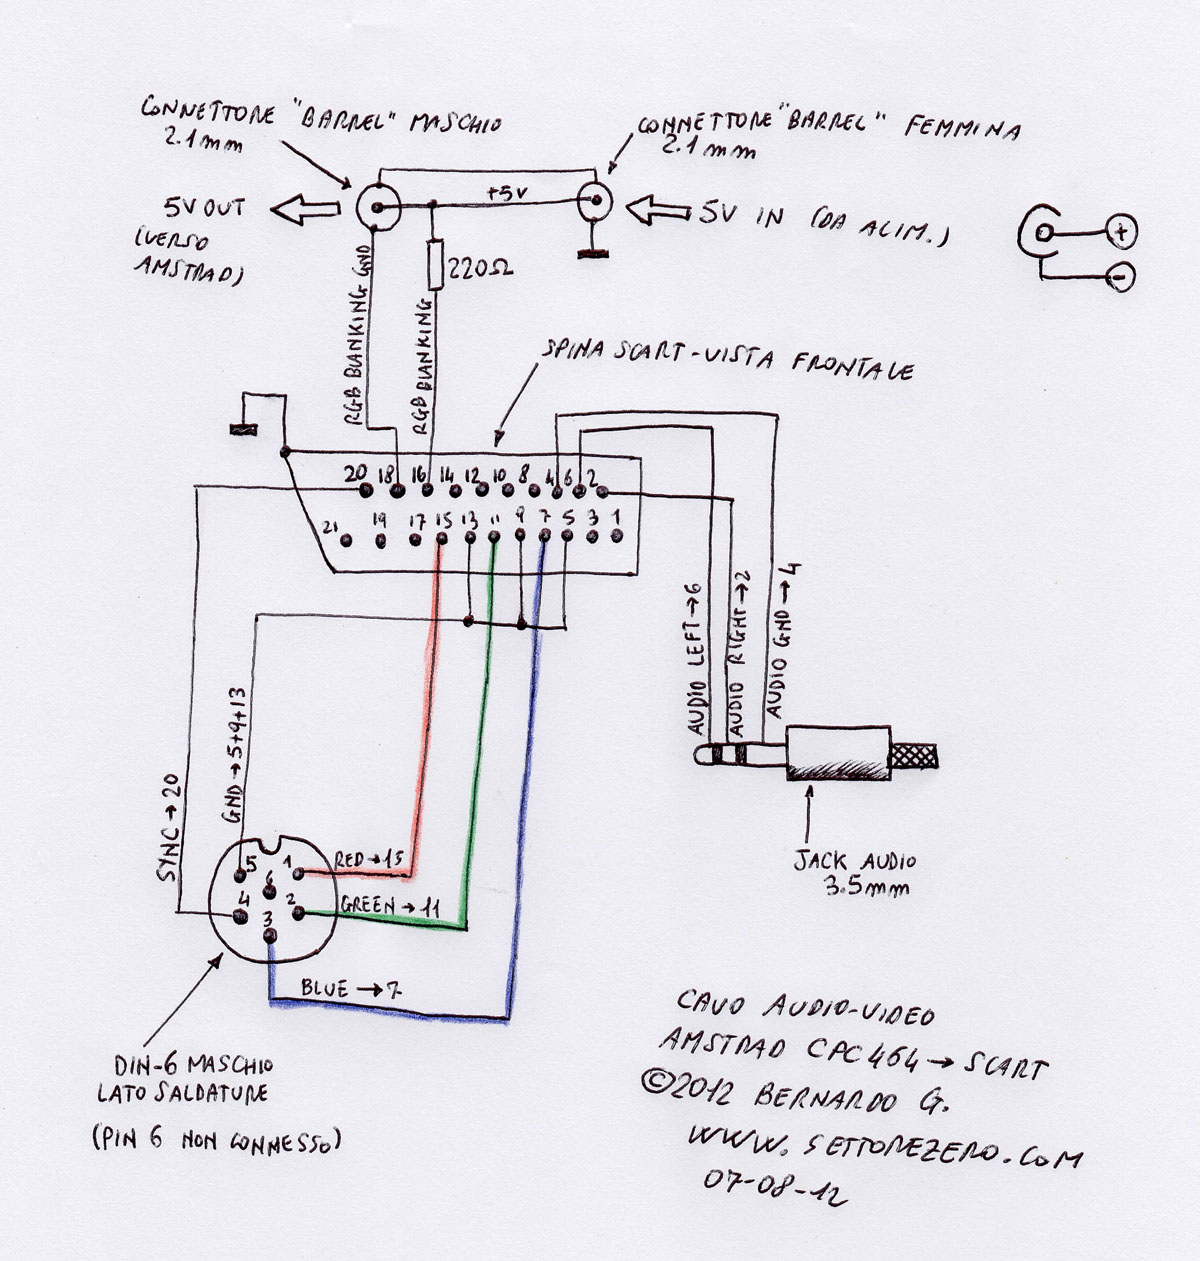 CONNETTORE "BARREL" MASCHIO
2.1mm
CONNETTORE "BARREL" FEMMINA
2.1mm
5V OUT
(VERSO
AMSTRAD)
+5V
5V IN (DA ALIM.)
+
-
220Ω
RGB BLANKING GND
RGB BLANKING
SPINA SCART-VISTA FRONTALE
20 18 16 14 12 10 8 4 6 2
21 19 17 15 13 11 9 7 5 3 1
AUDIO LEFT→6
AUDIO RIGHT→2
AUDIO GND→4
SYNC→20
GND→5+9+13
5 1
6
4 2
3
RED→15
GREEN→11
BLUE→7
JACK AUDIO
3.5mm
DIN-6 MASCHIO
LATO SALDATURE
(PIN 6 NON CONNESSO)
CAVO AUDIO-VIDEO
AMSTRAD CPC464→SCART
©2012 BERNARDO G.
WWW.SETTOREZERO.COM
07-08-12